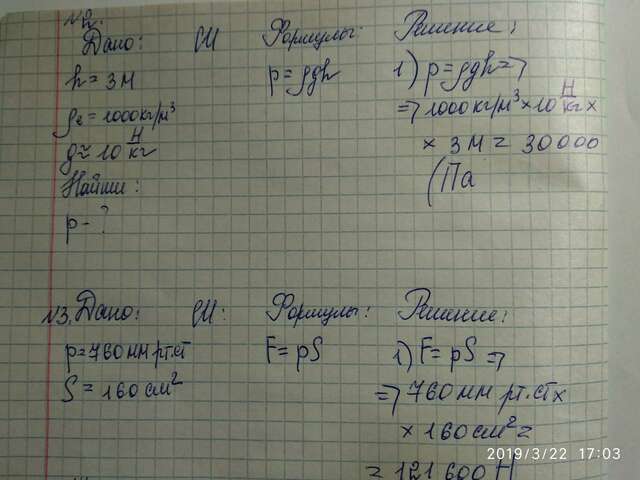 №2.
Дано: СИ Формулы: Решение:
h = 3м p = ρgh 1) p = ρgh =>
ρ = 1000 кг/м³ => 1000 кг/м³ × 10 Н/кг ×
g ≈ 10 Н/кг × 3 м = 30000
Найти: (Па
p - ?
№3. Дано: СИ: Формулы: Решение:
p = 760 мм рт.ст F = pS 1) F = pS =>
S = 160 см² => 760 мм рт.ст ×
× 160 см² =
2019/3/22 17:03
= 121 600 Н